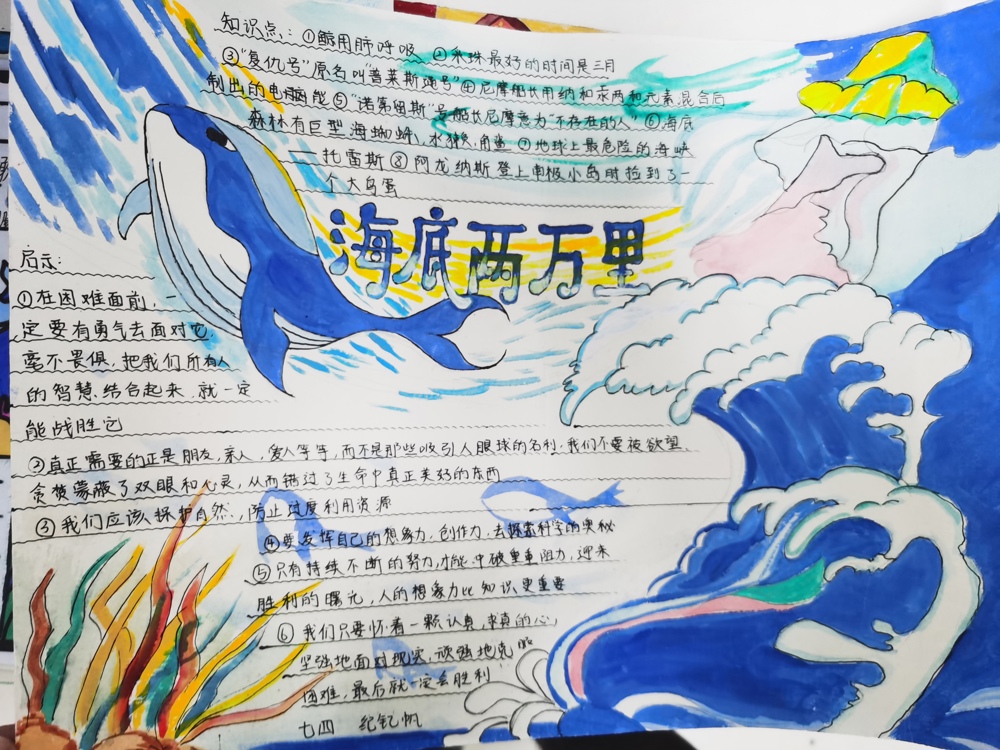 知识点：①鲸用肺呼吸 ②采珠最好的时间是三月
③“复仇号”原名叫“普莱斯号”④尼摩船长用纳和汞两和元素混合后
制出的电脑能⑤“诺第留斯”号船长尼摩意为“不存在的人”⑥海底
森林有巨型海蜘蛛，水獭，角鲨 ⑦地球上最危险的海峡
托雷斯 ⑧阿龙纳斯登上南极小岛时捡到了一
个大鸟蛋
海底两万里
启示：
①在困难面前，一
定要有勇气去面对它，
毫不畏惧，把我们所有人
的智慧结合起来，就一定
能战胜它
②真正需要的正是朋友，亲人，爱人等等，而不是那些吸引人眼球的名利，我们不要被欲望
贪婪蒙蔽了双眼和心灵，从而错过了生命中真正美好的东西
③我们应该保护自然，防止过度利用资源
④要发挥自己的想象力，创作力，去探索科学的奥秘
⑤只有持续不断的努力，才能冲破重重阻力，迎来
胜利的曙光，人的想象力比知识更重要
⑥我们只要怀着一颗认真，求真的心，
坚强地面对现实，顽强地克服
困难，最后就一定会胜利
七四 纪 帆